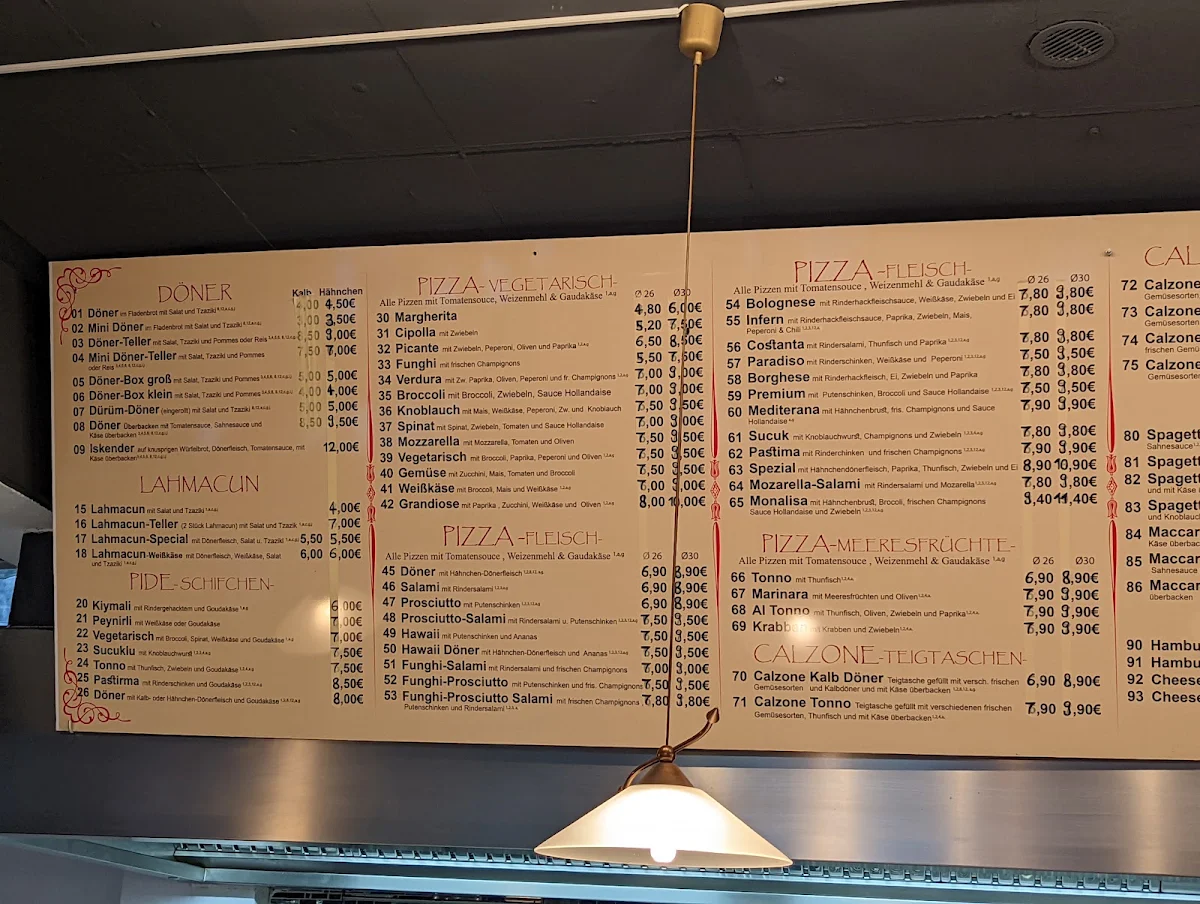 DÖNER
Kalb Hähnchen
01 Döner im Fladenbrot mit Salat und Tzaziki 4,00 4,50€
02 Mini Döner im Fladenbrot mit Salat und Tzaziki 3,00 3,50€
03 Döner-Teller mit Salat, Tzaziki und Pommes oder Reis 8,50
04 Mini Döner-Teller mit Salat, Tzaziki und Pommes 7,50 7,00€
oder Reis
05 Döner-Box groß mit Salat, Tzaziki und Pommes 5,00 5,00€
06 Döner-Box klein mit Salat, Tzaziki und Pommes 4,00 4,00€
07 Dürüm-Döner (eingerollt) mit Salat und Tzaziki 5,00 5,00€
08 Döner überbacken mit Tomatensauce, Sahnesauce und 8,50
Käse überbacken
09 Iskender auf knusprigen Würfelbrot, Dönerfleisch, Tomatensauce, mit 12,00€
Käse überbacken
LAHMACUN
15 Lahmacun mit Salat und Tzaziki 4,00€
16 Lahmacun-Teller (2 Stück Lahmacun) mit Salat und Tzaziki 7,00€
17 Lahmacun-Special mit Dönerfleisch, Salat u. Tzaziki 5,50 5,50€
18 Lahmacun-Weißkäse mit Dönerfleisch, Weißkäse, Salat 6,00 6,00€
und Tzaziki
PIDE-SCHIFCHEN-
20 Kiymali mit Rindergehacktem und Goudakäse 6,00€
21 Peynirli mit Weißkäse oder Goudakäse 7,00€
22 Vegetarisch mit Broccoli, Spinat, Weißkäse und Goudakäse 7,00€
23 Sucuklu mit Knoblauchwurst 7,50€
24 Tonno mit Thunfisch, Zwiebeln und Goudakäse 7,50€
25 Pastirma mit Rinderschinken und Goudakäse 8,50€
26 Döner mit Kalb- oder Hähnchen-Dönerfleisch und Goudakäse 8,00€
PIZZA-VEGETARISCH-
Alle Pizzen mit Tomatensouce, Weizenmehl & Gaudakäse Ø 26 Ø30
30 Margherita 4,80 6,00€
31 Cipolla mit Zwiebeln 5,20 7,50€
32 Picante mit Zwiebeln, Peperoni, Oliven und Paprika 6,50 8,50€
33 Funghi mit frischen Champignons 5,50 7,50€
34 Verdura mit Zw. Paprika, Oliven, Peperoni und fr. Champignons 7,00
35 Broccoli mit Broccoli, Zwiebeln, Sauce Hollandaise 7,00
36 Knoblauch mit Mais, Weißkäse, Peperoni, Zw. und Knoblauch 7,50
37 Spinat mit Spinat, Zwiebeln, Tomaten und Sauce Hollandaise 7,50
38 Mozzarella mit Mozzarella, Tomaten und Oliven 7,50
39 Vegetarisch mit Broccoli, Paprika, Peperoni und Oliven 7,50
40 Gemüse mit Zucchini, Mais, Tomaten und Broccoli 7,50
41 Weißkäse mit Broccoli, Mais und Weißkäse 7,00
42 Grandiose mit Paprika, Zucchini, Weißkäse und Oliven 8,00 10,00€
PIZZA-FLEISCH-
Alle Pizzen mit Tomatensouce, Weizenmehl & Gaudakäse Ø 26 Ø30
45 Döner mit Hähnchen-Dönerfleisch 6,90 8,90€
46 Salami mit Rindersalami 6,90 8,90€
47 Prosciutto mit Putenschinken 6,90 8,90€
48 Prosciutto-Salami mit Rindersalami u. Putenschinken 7,50
49 Hawaii mit Putenschinken und Ananas 7,50
50 Hawaii Döner mit Hähnchen-Dönerfleisch und Ananas 7,50
51 Funghi-Salami mit Rindersalami und frischen Champignons 7,00
52 Funghi-Prosciutto mit Putenschinken und fris. Champignons 7,50
53 Funghi-Prosciutto Salami mit frischen Champignons 7,80
Putenschinken und Rindersalami
PIZZA-FLEISCH-
Alle Pizzen mit Tomatensouce, Weizenmehl & Gaudakäse Ø 26 Ø30
54 Bolognese mit Rinderhackfleischsauce, Weißkäse, Zwiebeln und Ei 7,80
55 Infern mit Rinderhackfleischsauce, Paprika, Zwiebeln, Mais, 7,80
Peperoni & Chili
56 Costanta mit Rindersalami, Thunfisch und Paprika 7,80
57 Paradiso mit Rinderschinken, Weißkäse und Peperoni 7,50
58 Borghese mit Rinderhackfleisch, Ei, Zwiebeln und Paprika 7,80
59 Premium mit Putenschinken, Broccoli und Sauce Hollandaise 7,50
60 Mediterana mit Hähnchenbrust, fris. Champignons und Sauce 7,90
Hollandaise
61 Sucuk mit Knoblauchwurst, Champignons und Zwiebeln 7,80
62 Pastima mit Rinderchinken und frischen Champignons 7,90
63 Spezial mit Hähnchendönerfleisch, Paprika, Thunfisch, Zwiebeln und Ei 8,90 10,90€
64 Mozarella-Salami mit Rindersalami und Mozarella 7,80
65 Monalisa mit Hähnchenbrust, Brocoli, frischen Champignons 11,40€
Sauce Hollandaise und Zwiebeln
PIZZA-MEERESFRÜCHTE-
Alle Pizzen mit Tomatensouce, Weizenmehl & Gaudakäse Ø 26 Ø30
66 Tonno mit Thunfisch 6,90 8,90€
67 Marinara mit Meeresfrüchten und Oliven 7,90
68 Al Tonno mit Thunfisch, Oliven, Zwiebeln und Paprika 7,90
69 Krabben mit Krabben und Zwiebeln 7,90
CALZONE-TEIGTASCHEN-
70 Calzone Kalb Döner Teigtasche gefüllt mit versch. frischen 6,90 8,90€
Gemüsesorten und Kalbdöner und mit Käse überbacken
71 Calzone Tonno Teigtasche gefüllt mit verschiedenen frischen 7,90
Gemüsesorten, Thunfisch und mit Käse überbacken
CAL
72 Calzone
Gemüsesorten
73 Calzone
Gemüsesorten
74 Calzone
frischen Gem
75 Calzone
Gemüsesorten
80 Spagett
Sahnesauce
81 Spagett
82 Spagett
und mit Käse
83 Spagett
und Knoblauc
84 Maccar
Käse überbac
85 Maccar
Sahnesauce
86 Maccar
überbacken
90 Hambu
91 Hambu
92 Cheese
93 Cheese